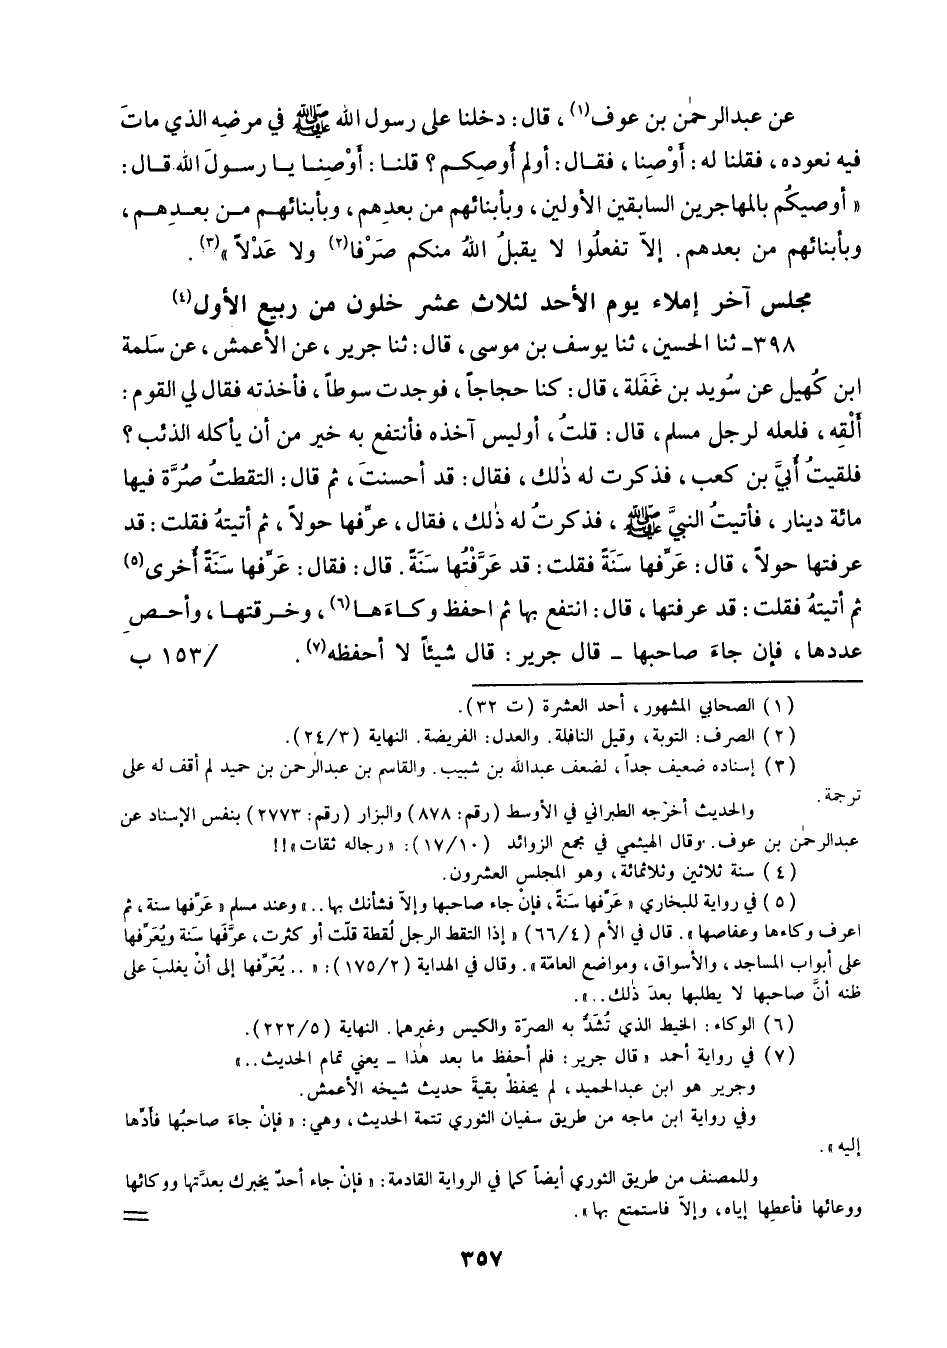 عن عبدالرحمٰن بن عوف(١) ، قال : دخلنا على رسول الله ﷺ في مرضِه الذي ماتَ
فيه نعوده ، فقلنا له : أَوْصِنا ، فقـال : أولم أُوصِكـم ؟ قلنـا : أَوْصِنـا يـا رسـولَ الله قـال :
« أوصيكُم بالمهاجرين السابقين الأولين ، وبأبنائهم من بعدِهم ، وبأبنائهـم مـن بعـدِهـم ،
وبأبنائهم من بعدهم . إلاّ تفعلُوا لا يقبلُ اللهُ منكم صَرْفا(٢) ولا عَدْلاً »(٣) .
مجلس آخر إملاء يوم الأحد لثلاث عشر خلون من ربيع الأول(٤)
٣٩٨ـ ثنا الحسين ، ثنا يوسف بن موسى ، قال : ثنا جرير ، عن الأعمش ، عن سَلمة
ابن كُهيل عن سُويد بن غَفَلة ، قال : كنا حجاجاً ، فوجدت سوطاً ، فأخذته فقال لي القوم :
أَلْقِه ، فلعله لرجل مسلم ، قال : قلتُ ، أوليس آخذه فأنتفع به خير من أن يأكله الذئب ؟
فلقيتُ أُبيَّ بن كعب ، فذكرت له ذٰلك ، فقال : قد أحسنتَ ، ثم قال : التقطتُ صُرَّة فيها
مائة دينار ، فأتيتُ النبيَّ ﷺ ، فذكرتُ له ذٰلك ، فقال ، عرِّفها حولاً ، ثم أتيتهُ فقلت : قد
عرفتها حولاً ، قال : عَرِّفها سَنَةً فقلت : قد عَرَّفْتُها سَنَةً . قال : فقال : عَرِّفها سَنَةً أُخرى(٥)
ثم أتيتهُ فقلت : قد عرفتها ، قال : انتفع بها ثم احفظ وكـاءَهـا(٦) ، وخـرقتهـا ، وأحـصِ
عددها ، فإن جاءَ صاحبها ـ قال جرير : قال شيئاً لا أحفظه(٧) . /١٥٣ ب
(١) الصحابي المشهور ، أحد العشرة (ت ٣٢).
(٢) الصرف: التوبة، وقيل النافلة. والعدل: الفريضة. النهاية (٢٤/٣).
(٣) إسناده ضعيف جداً ، لضعف عبدالله بن شبيب. والقاسم بن عبدالرحمن بن حميد لم أقف له على
ترجمة .
والحديث أخرجه الطبراني في الأوسط (رقم: ٨٧٨) والبزار (رقم: ٢٧٧٣) بنفس الإسناد عن
عبدالرحمٰن بن عوف. وقال الهيثمي في مجمع الزوائد (١٧/١٠): « رجاله ثقات »!!
(٤) سنة ثلاثين وثلاثمائة، وهو المجلس العشرون.
(٥) في رواية للبخاري « عَرِّفها سَنَةً، فإنْ جاء صاحبها وإلاّ فشأنك بها .. » وعند مسلم « عَرِّفها سنة، ثم
اعرف وكاءها وعفاصها ». قال في الأم (٦٦/٤) « إذا التقط الرجل لُقطة قلّت أو كثرت، عرَّفها سَنة ويُعَرِّفها
على أبواب المساجد، والأسواق، ومواضع العامّة ». وقال في الهداية (١٧٥/٢): « .. يُعَرِّفها إلى أنْ يغلبَ على
ظنه أنَّ صاحبها لا يطلبها بعدَ ذٰلك .. ».
(٦) الوكاء: الخيط الذي تُشَدُّ به الصرّة والكيس وغيرهما. النهاية (٢٢٢/٥).
(٧) في رواية أحمد « قال جرير: فلم أحفظ ما بعد هٰذا ـ يعني تمام الحديث .. »
وجرير هو ابن عبدالحميد، لم يحفظْ بقيةَ حديث شيخه الأعمش.
وفي رواية ابن ماجه من طريق سفيان الثوري تتمة الحديث، وهي: « فإنْ جاءَ صاحبُها فأدِّها
إليه ».
وللمصنف من طريق الثوري أيضاً كما في الرواية القادمة: « فإنْ جاء أحدٌ يخبرك بعدَّتها ووكائها
ووعائها فأعطِها إياه، وإلاّ فاستمتع بها ». =
٣٥٧